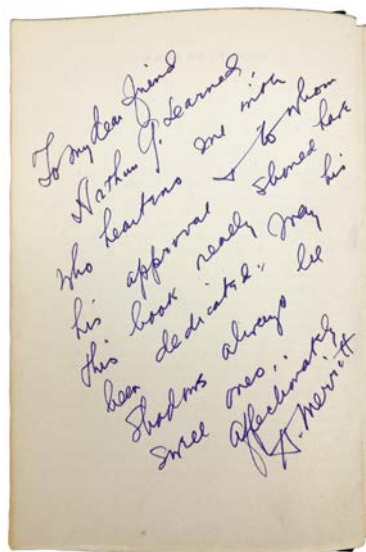 To my dear friend
Arthur G. Learned,
who heartens me with
his approval & to whom
this book really should have
been dedicated; may his
shadows always be
swell ones,
affectionately
A. Merritt